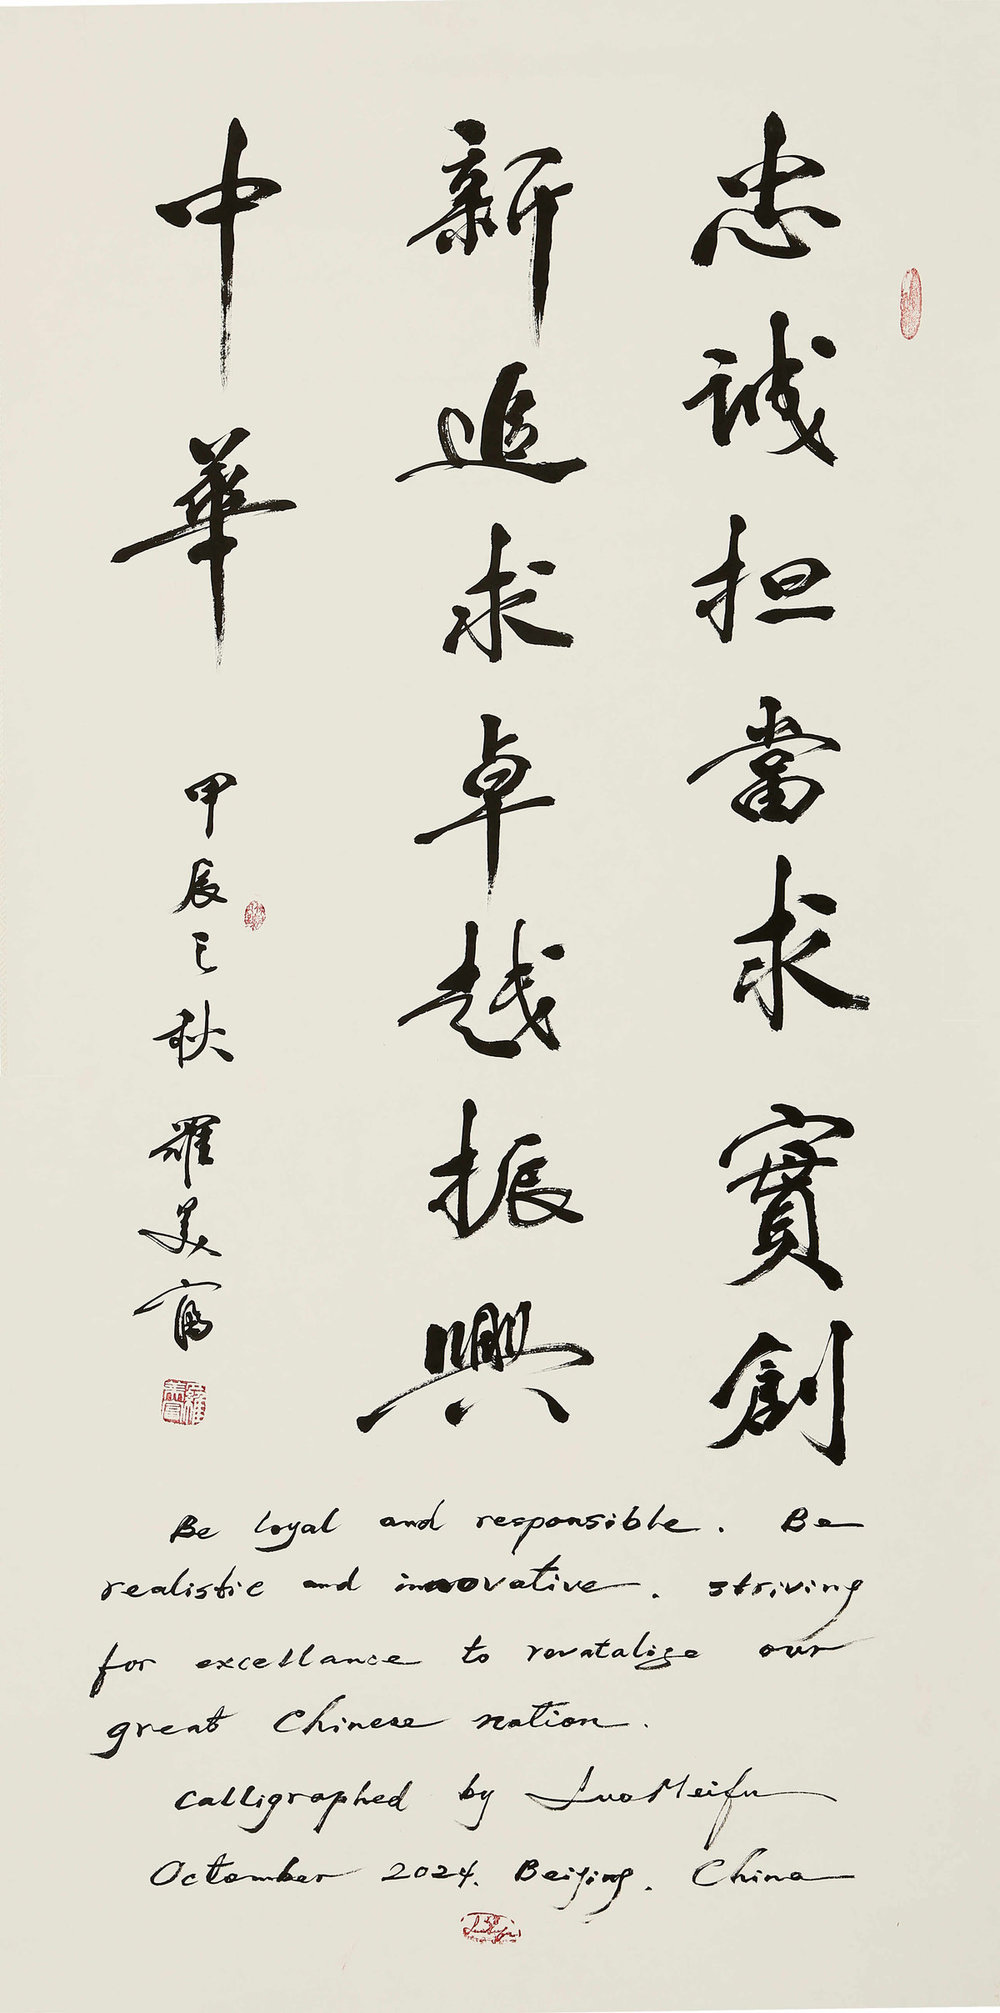 忠诚担當求實創
新追求卓越振興
中華
甲辰之秋羅美富
Be loyal and responsible. Be
realistic and innovative. striving
for excellance to revatalige our
great Chinese nation.
calligraphed by LuoMeifu
Octomber 2024. Beijing. China